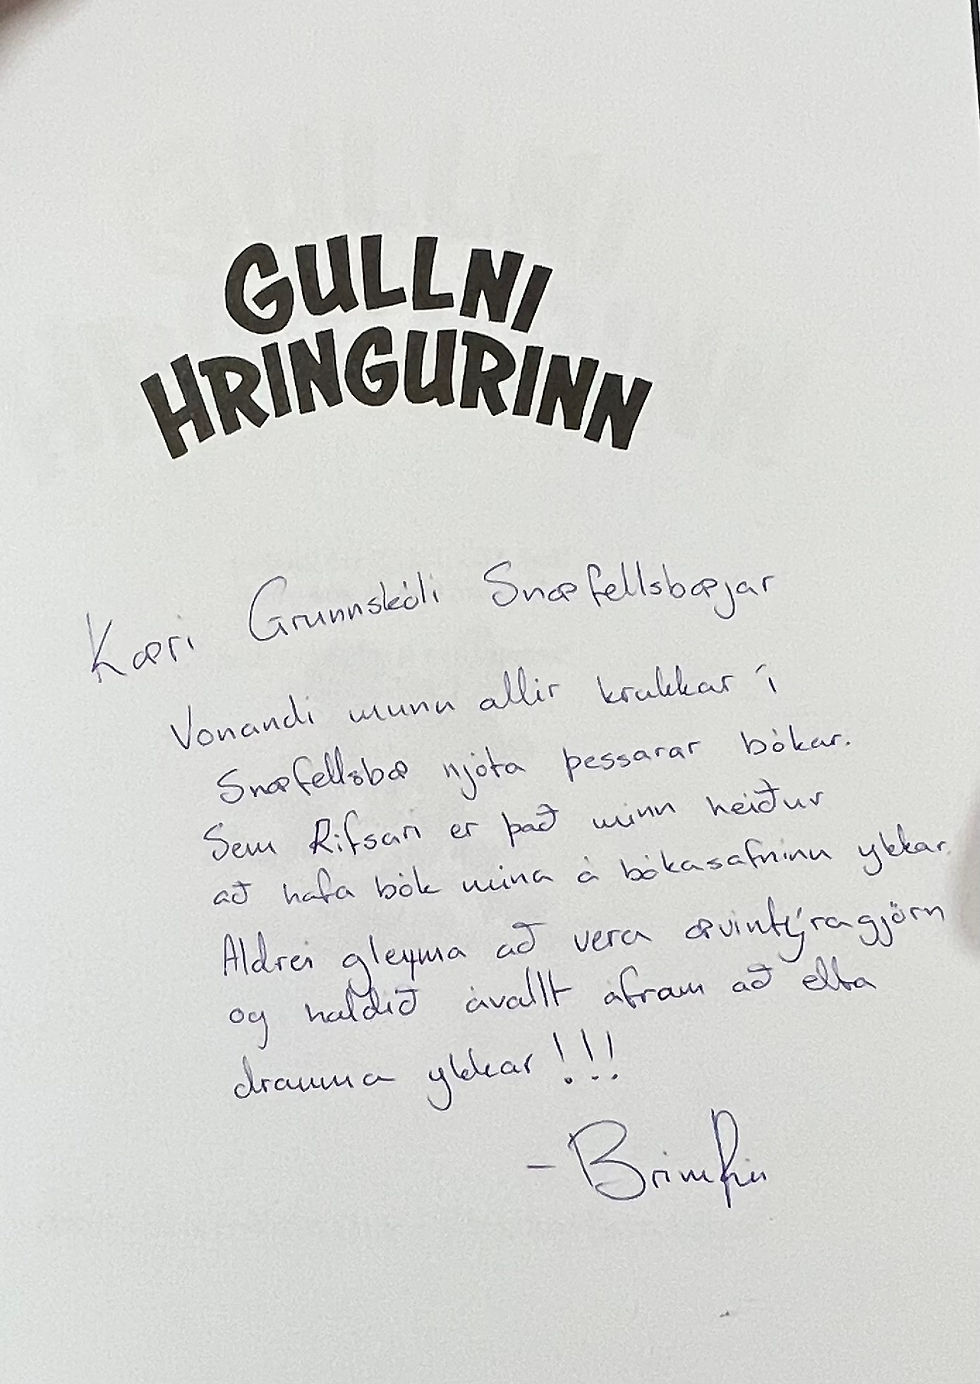 GULLNI
HRINGURINN
Kæri Grunnskóli Snæfellsbæjar
Vonandi munu allir krakkar í
Snæfellsbæ njóta þessarar bókar.
Sem Rifsari er það minn heiður
að hafa bók mína á bókasafninu ykkar.
Aldrei gleyma að vera ævintýragjörn
og haldið ávallt áfram að elta
drauma ykkar!!!